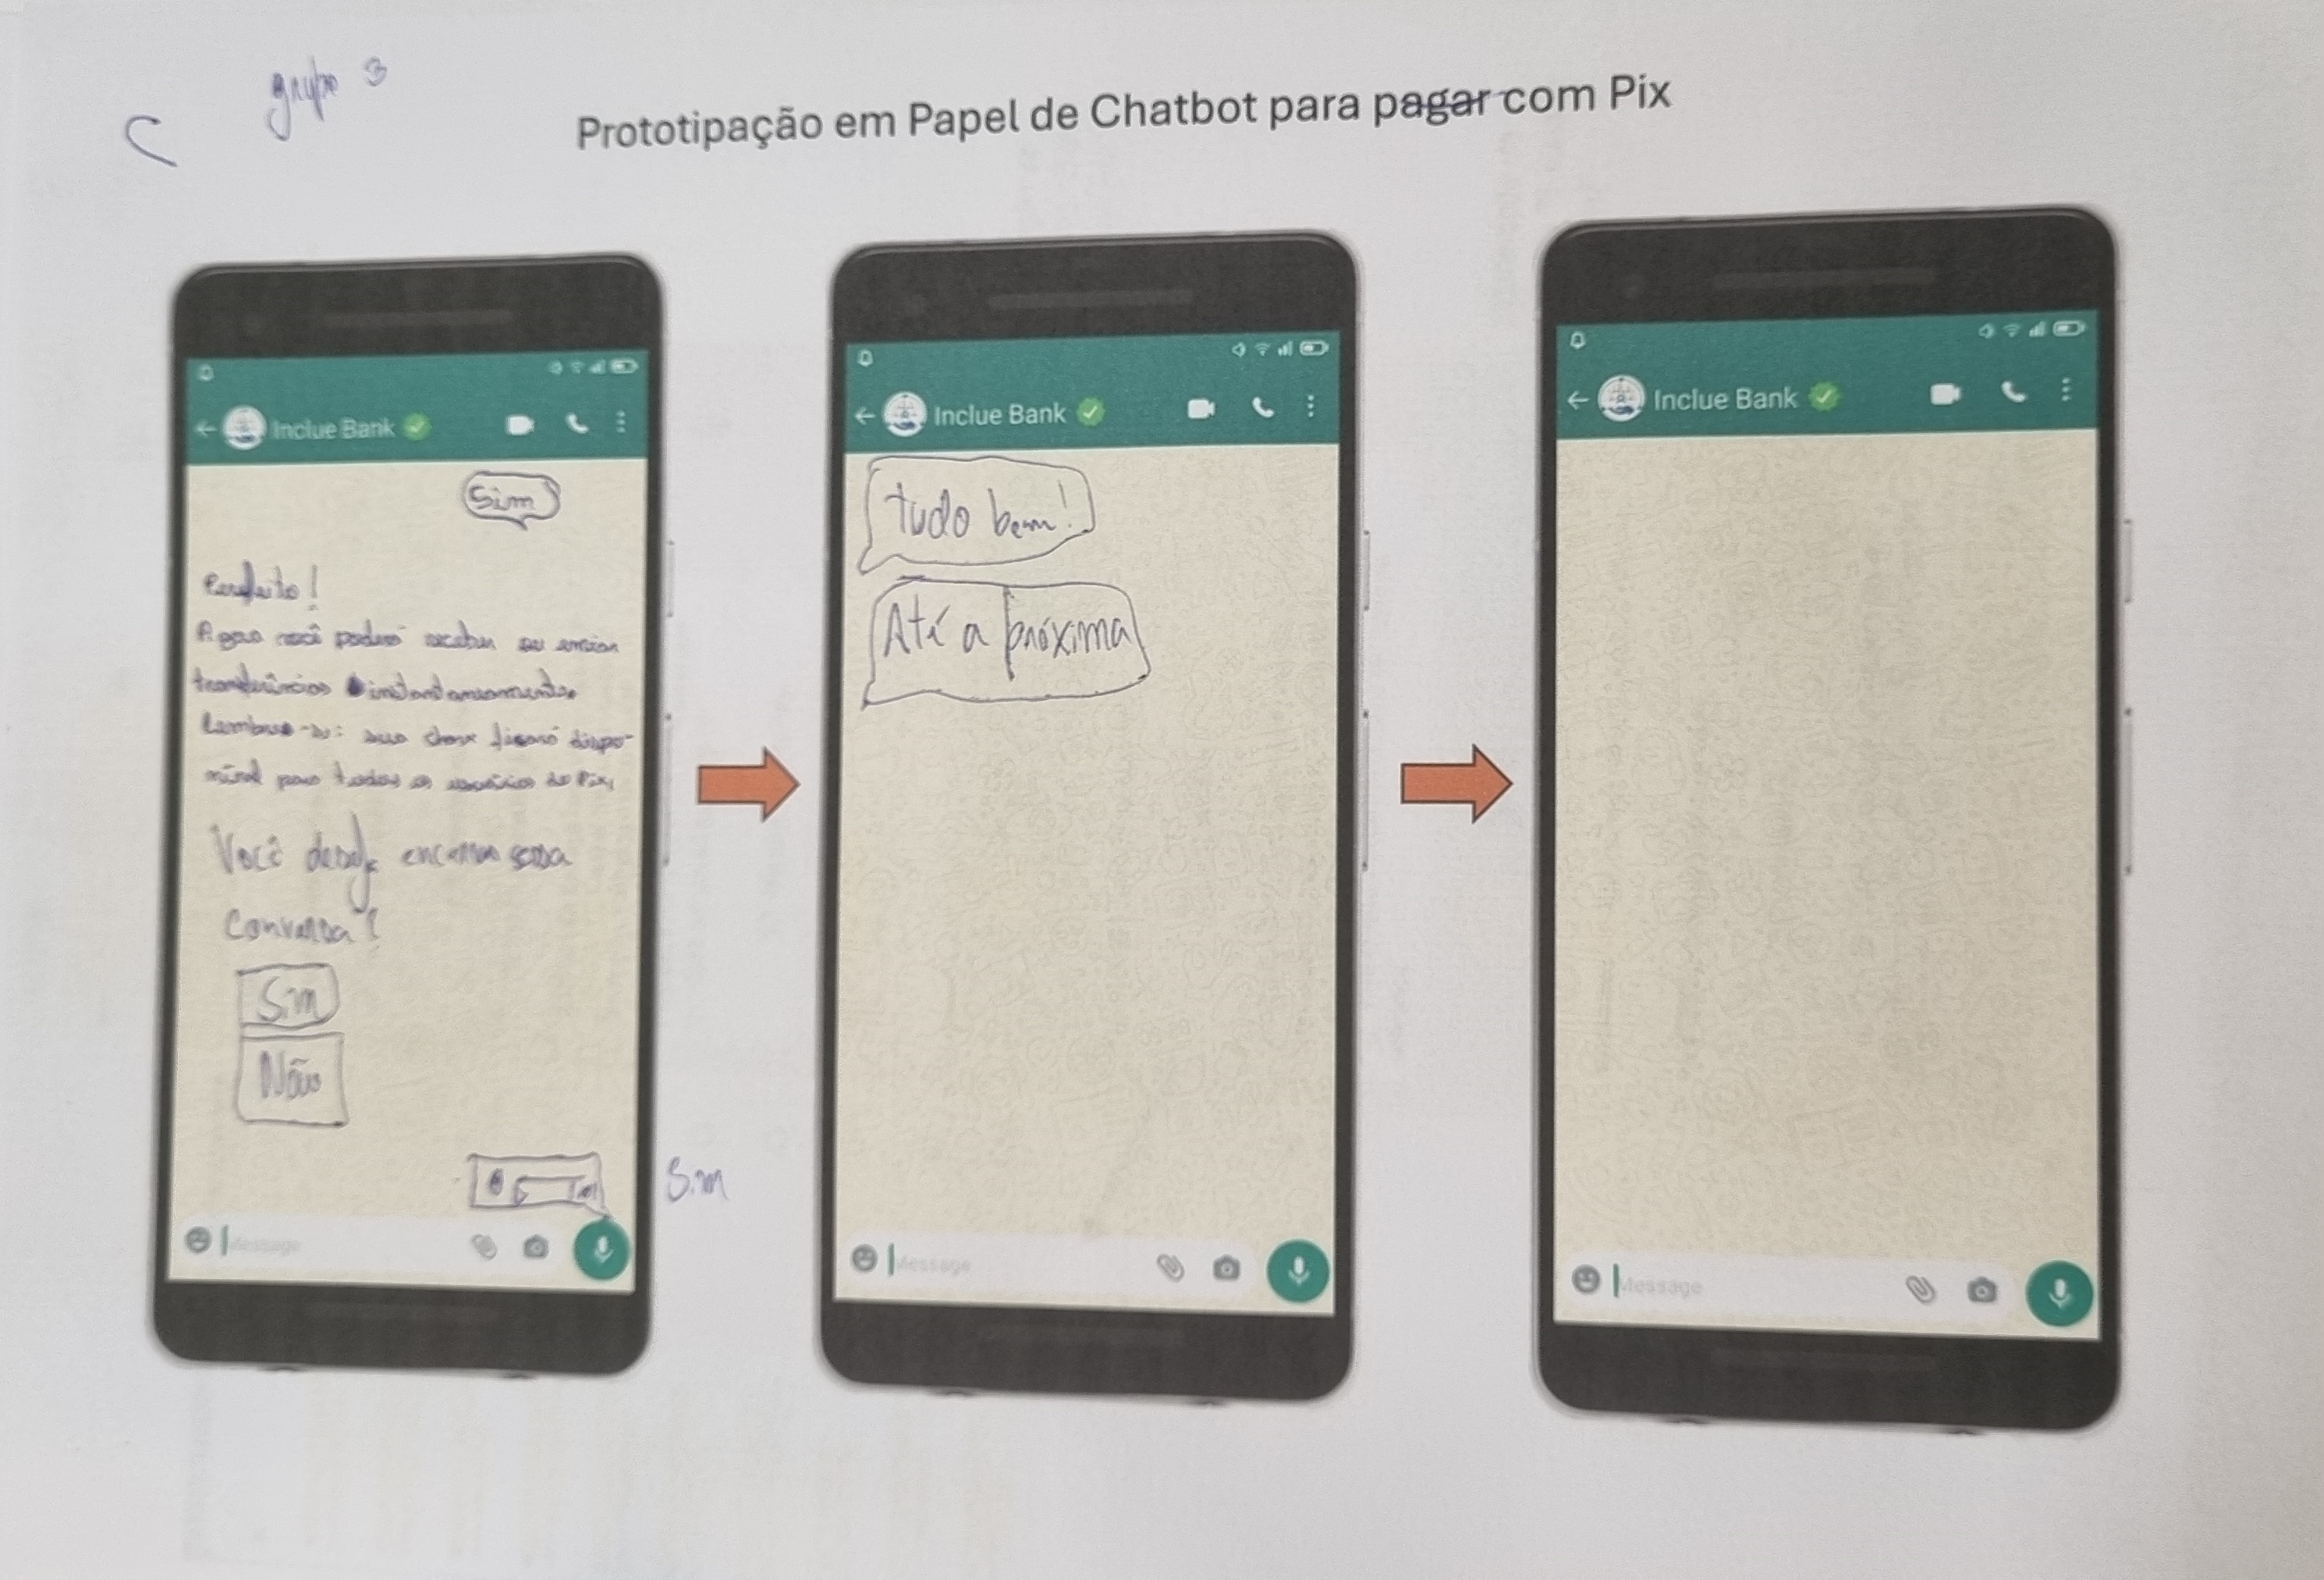 C
grupo 3
Prototipação em Papel de Chatbot para pagar com Pix
Inclue Bank
Sim
Perfeito!
Agora você poderá receber ou enviar
transferências instantaneamente.
Lembre-se: sua chave ficará dispo-
nível para todos os usuários do Pix,
Você deseja encerrar essa
Conversa?
Sim
Não
Sim
Message
Inclue Bank
tudo bem!
Até a próxima
Message
Inclue Bank
Message